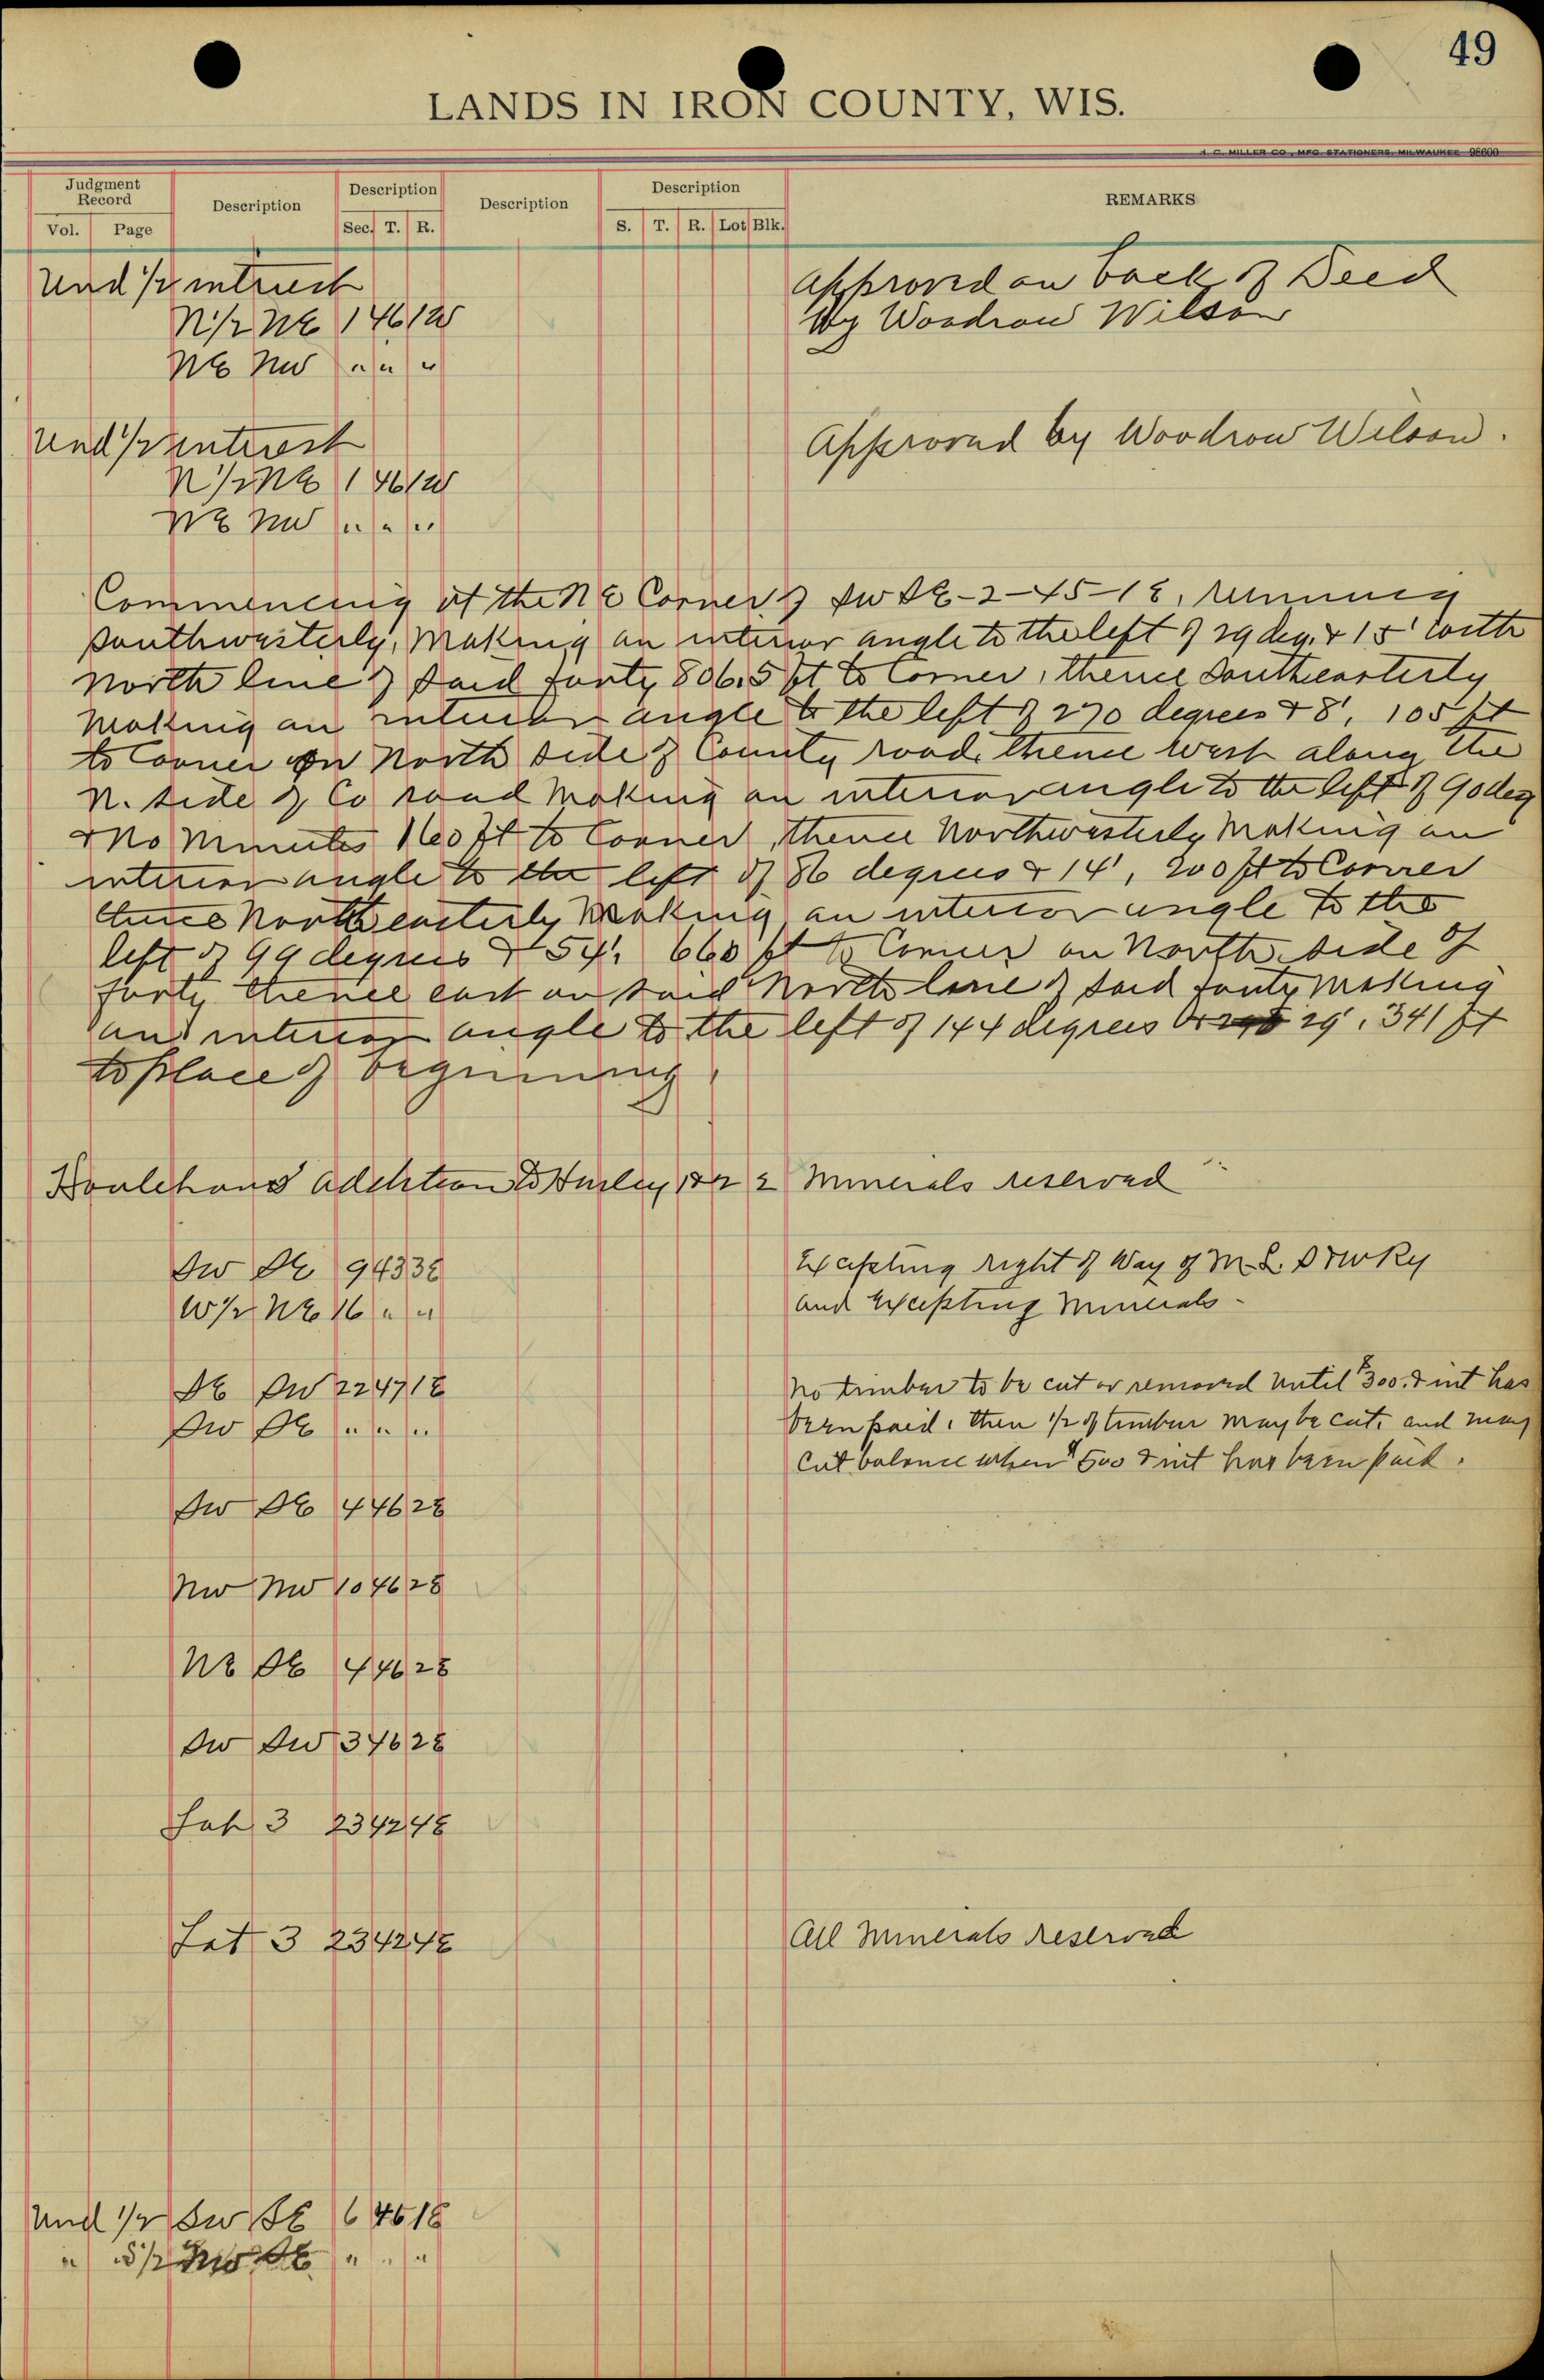 49
LANDS IN IRON COUNTY, WIS.
H. C. MILLER CO., MFG. STATIONERS, MILWAUKEE 98600
Judgment Record
Vol. Page
Description
Description
Sec. T. R.
Description
Description
S. T. R. Lot Blk.
REMARKS
Und 1/2 interest
Approved on back of Deed
N 1/2 NE 1 46 1W
by Woodrow Wilson
NE NW " " "
Und 1/2 interest
Approved by Woodrow Wilson.
N 1/2 NE 1 46 1W
NE NW " " "
Commencing at the NE Corner of SW SE-2-45-1E, running
southwesterly, making an interior angle to the left of 29 deg. & 15' with
north line of said forty 806.5 ft to Corner, thence Southeasterly
making an interior angle to the left of 270 degrees & 8', 105 ft
to Corner on North side of County road, thence west along the
N. side of Co road making an interior angle to the left of 90 deg
& no minutes 160 ft to Corner, thence Northwesterly making an
interior angle to the left of 86 degrees & 14', 200 ft to Corner
thence Northeasterly making an interior angle to the
left of 99 degrees & 54', 660 ft to Corner on North side of
forty thence east on said North line of said forty making
and interior angle to the left of 144 degrees 29', 341 ft
to place of beginning.
Houlehans Addition to Hurley 12 2 Minerals reserved
SW SE 9 43 3E
Excepting right of Way of M. L. S & W Ry
W 1/2 NE 16 " "
and Excepting Minerals.
SE SW 22 47 1E
No timber to be cut or removed until $300. & int has
SW SE " " "
been paid, then 1/2 of timber may be cut, and may
cut balance when $500 & int has been paid.
SW SE 4 46 2E
NW NW 10 46 2E
NE SE 4 46 2E
SW SW 3 46 2E
Lot 3 23 42 4E
Lot 3 23 42 4E
All Minerals Reserved
Und 1/2 SW SE 6 46 1E
" S 1/2 NW SE " " "